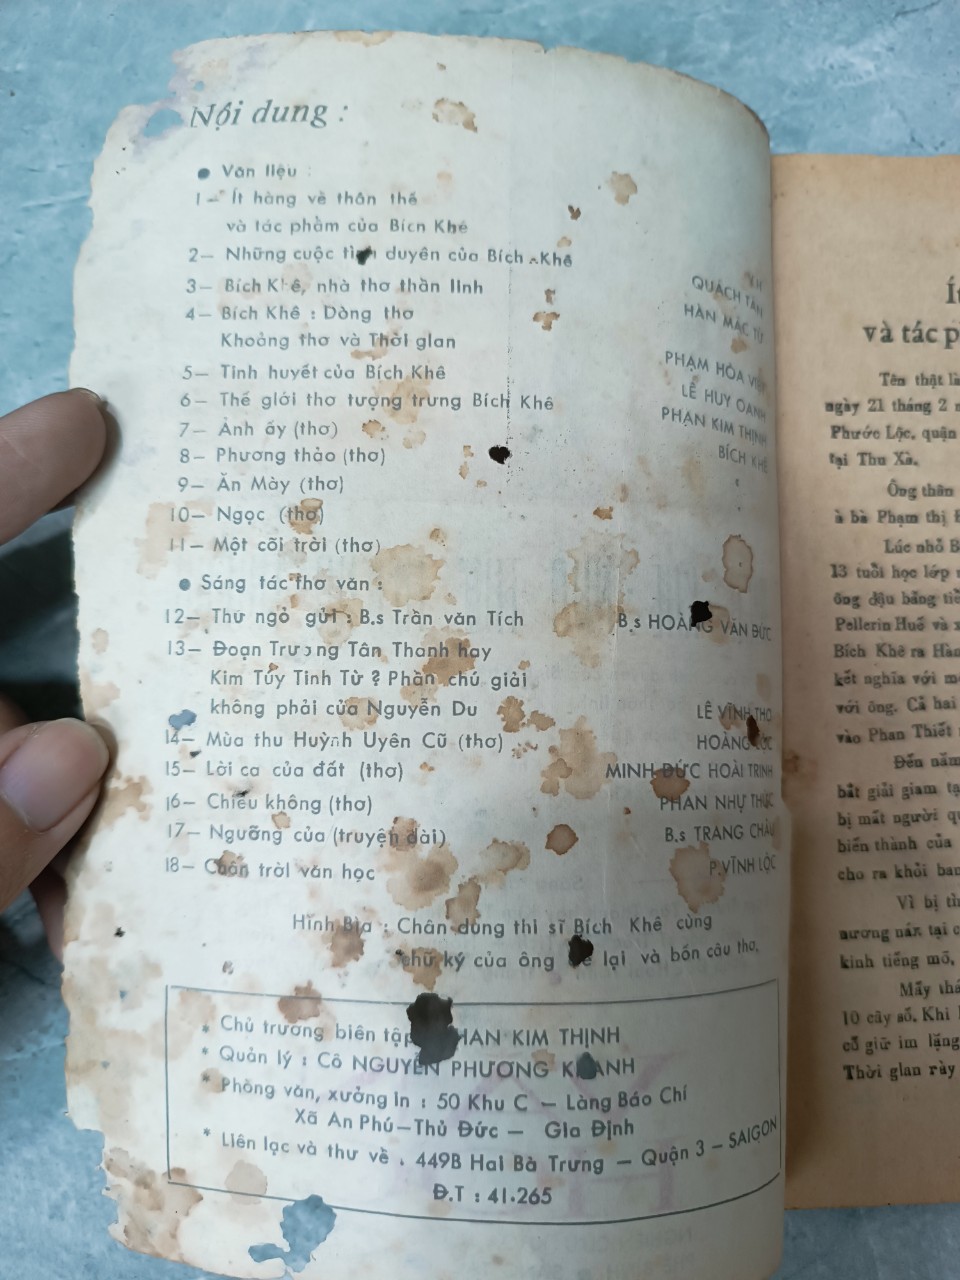 Nội dung :
● Văn liệu :
1— Ít hàng về thân thế
và tác phẩm của Bích Khê
2— Những cuộc tình duyên của Bích Khê
V.H
3— Bích Khê, nhà thơ thần linh
QUÁCH TẤN
4— Bích Khê : Dòng thơ
HÀN MẶC TỬ
Khoảng thơ và Thời gian
PHẠM HÒA VIỆT
5— Tinh huyết của Bích Khê
LÊ HUY OANH
6— Thế giới thơ tượng trưng Bích Khê
PHAN KIM THỊNH
7— Ảnh ấy (thơ)
BÍCH KHÊ
8— Phương thảo (thơ)
9— Ăn Mày (thơ)
10— Ngọc (thơ)
11— Một cõi trời (thơ)
● Sáng tác thơ văn :
12— Thư ngỏ gửi : B.s Trần văn Tích B.s HOÀNG VĂN ĐỨC
13— Đoạn Trường Tân Thanh hay
Kim Túy Tinh Từ ? Phần chú giải
không phải của Nguyễn Du LÊ VĨNH THỌ
14— Mùa thu Huỳnh Uyên Cũ (thơ) HOÀNG LỘC
15— Lời ca của đất (thơ) MINH ĐỨC HOÀI TRINH
16— Chiều không (thơ) PHAN NHỰ THỨC
17— Ngưỡng cửa (truyện dài) B.s TRANG CHÂU
18— Chân trời văn học P.VĨNH LỘC
Hình Bìa : Chân dung thi sĩ Bích Khê cùng
chữ ký của ông để lại và bốn câu thơ.
* Chủ trương biên tập PHAN KIM THỊNH
* Quản lý : Cô NGUYỄN PHƯƠNG KHANH
* Phòng văn, xưởng In : 50 Khu C — Làng Báo Chí
Xã An Phú—Thủ Đức — Gia Định
* Liên lạc và thư về . 449B Hai Bà Trưng — Quận 3 — SAIGON
Đ.T : 41.265
Ít
và tác p
Tên thật là
ngày 21 tháng 2 n
Phước Lộc, quận
tại Thu Xà.
Ông thân
à bà Phạm thị
Lúc nhỏ B
13 tuổi học lớp
ông đậu bằng tiể
Pellerin Huế và x
Bích Khê ra Hàn
kết nghĩa với m
với ông. Cả hai
vào Phan Thiết
Đến năm
bắt giải giam tạ
bị mất người qu
biến thành của
cho ra khỏi ban
Vì bị th
nương náu tại c
kinh tiếng mõ,
Mấy thá
10 cây số. Khi
cố giữ im lặng
Thời gian này